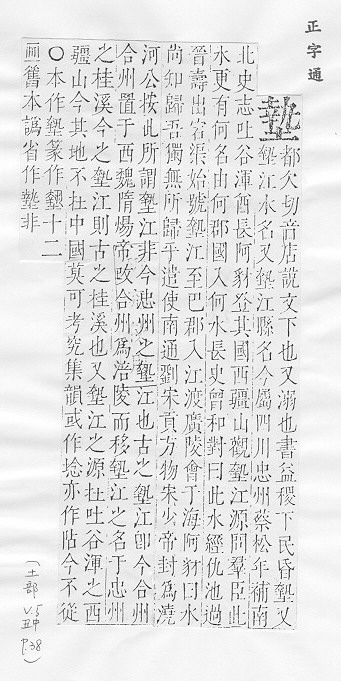 正字通
墊
都欠切音店說文下也又溺也書益稷下民昏墊又
墊江水名又墊江縣名今屬四川忠州蔡松年補南
北史志吐谷渾酋長阿豺登其國西疆山觀墊江源問羣臣此
水更有何名由何郡國入何水長史曾和對曰此水經仇池過
晉壽出宕渠始號墊江至巴郡入江渡廣陵會于海阿豺曰水
尚知歸吾獨無所歸乎遣使南通劉宋貢方物宋少帝封為澆
河公按此所謂墊江非今忠州之墊江也古之墊江卽今合州
合州置于西魏隋煬帝改合州為涪陵而移墊江之名于忠州
之桂溪今之墊江則古之桂溪也又墊江之源在吐谷渾之西
疆山今其地不在中國莫可考究集韻或作埝亦作阽今不從
○本作墊篆作十二
畫舊本譌省作墊非
(土部 v.5 丑中 p.38)